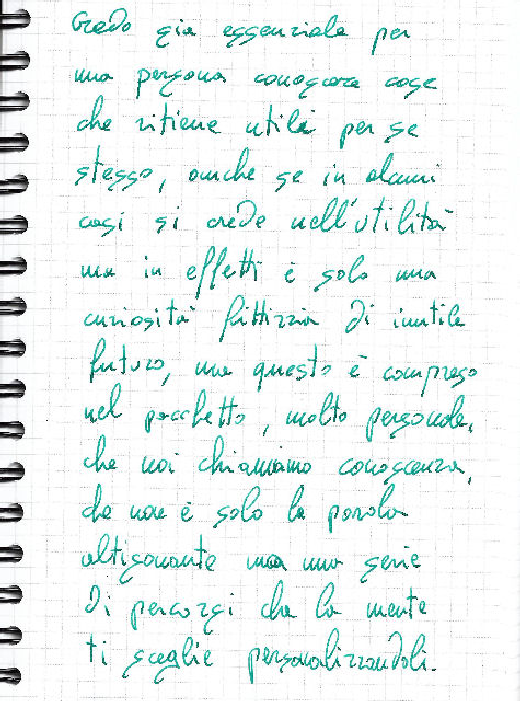 Credo sia essenziale per
una persona conoscere cose
che ritiene utili per se
stesso, anche se in alcuni
casi si crede nell'utilità
ma in effetti è solo una
curiosità fittizia di inutile
futuro, ma questo è compreso
nel pacchetto, molto personale,
che noi chiamiamo conoscenza,
che non è solo la parola
altisonante ma una serie
di percorsi che la mente
ti sceglie personalizzandoli.